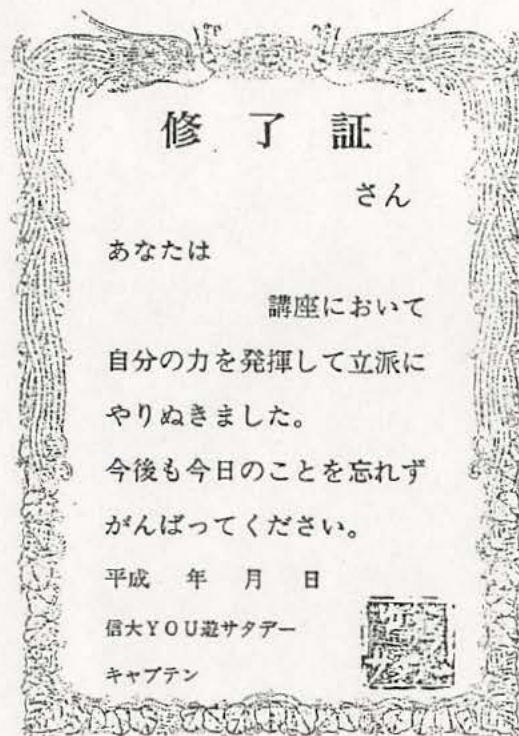 修了証
さん
あなたは
講座において
自分の力を発揮して立派に
やりぬきました。
今後も今日のことを忘れず
がんばってください。
平成 年 月 日
信大YOU遊サタデー
キャプテン